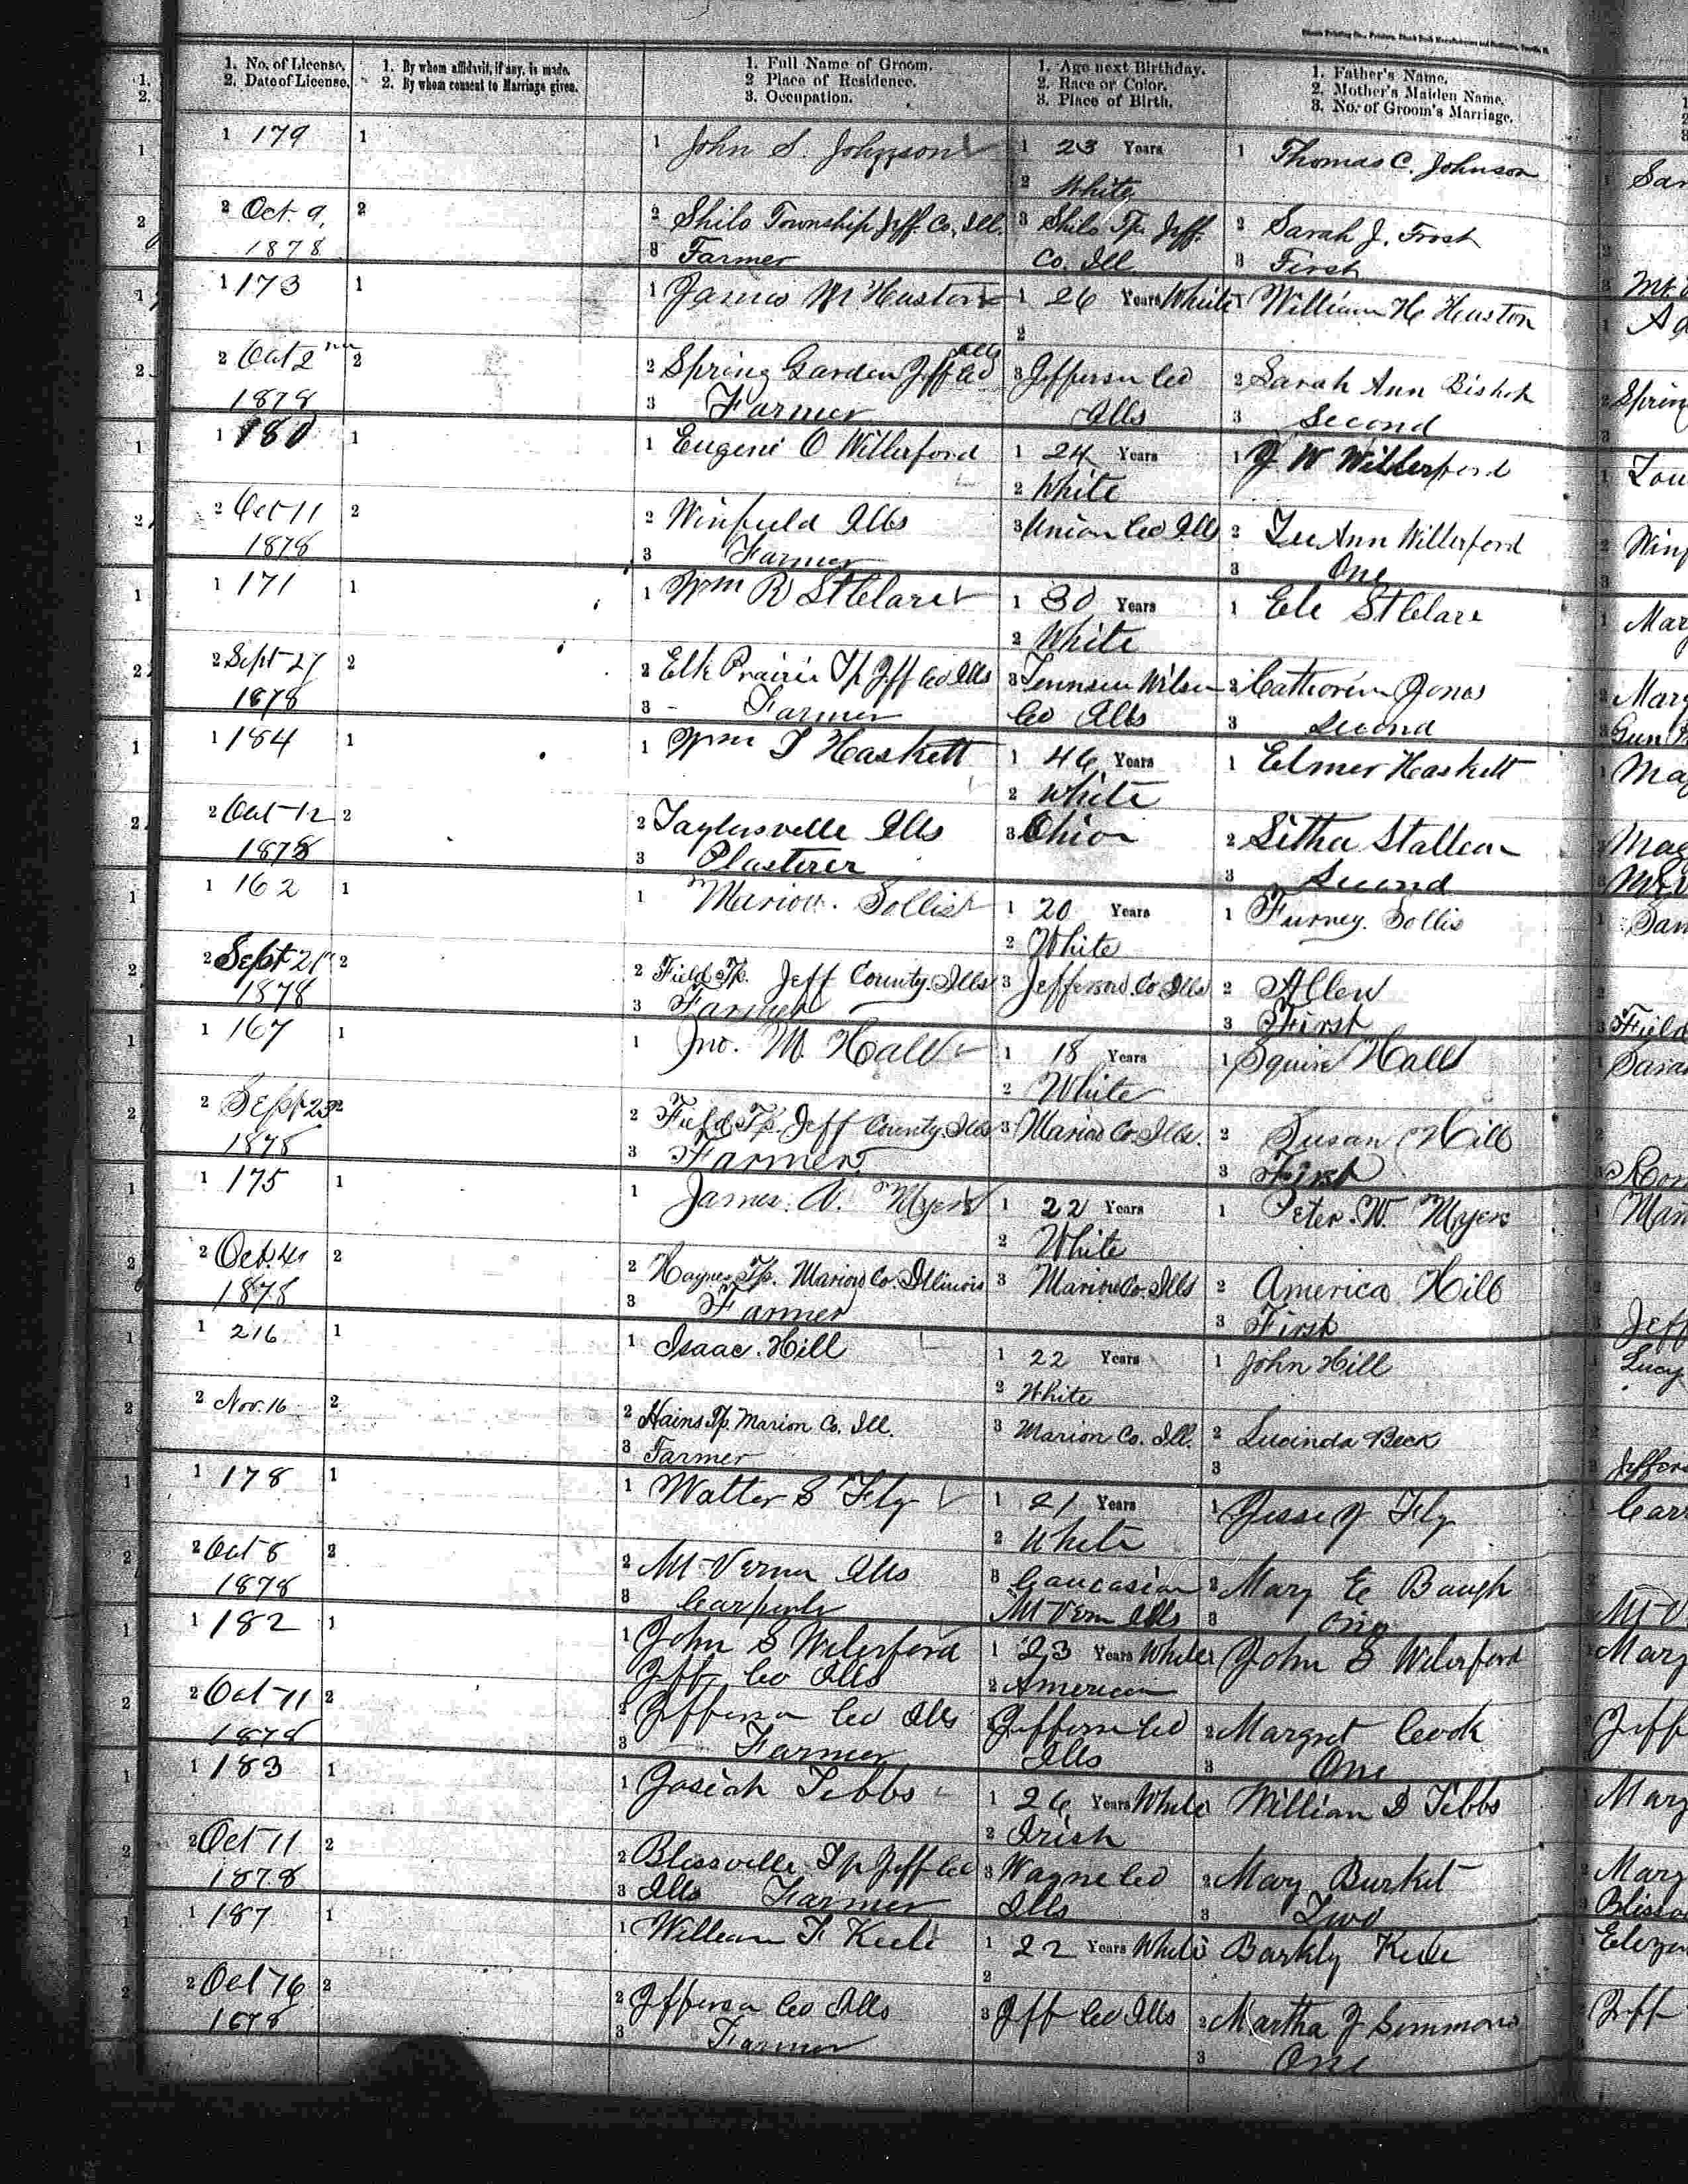 1. No. of License.
2. Date of License.
1. By whom affidavit, if any, is made.
2. By whom consent to Marriage given.
1. Full Name of Groom.
2 Place of Residence.
3. Occupation.
1. Age next Birthday.
2. Race or Color.
3. Place of Birth.
1. Father's Name.
2. Mother's Maiden Name.
3. No. of Groom's Marriage.
1 179 1 1 John S. Johnson 1 23 Years 1 Thomas C. Johnson
2 White
2 Oct. 9, 2 2 Shilo Township Jeff. Co, Ill. 3 Shilo Tp. Jeff. 2 Sarah J. Frost
1878 3 Farmer Co. Ill 3 First
1 173 1 1 James M Huston 1 26 Years White 1 William H Huston
2
2 Oct 2nd 2 2 Spring Garden Jeff Co Ills 3 Jefferson Co 2 Sarah Ann Bishop
1878 3 Farmer Ills 3 Second
1 180 1 1 Eugene O Willerford 1 24 Years 1 J W Willerford
2 White
2 Oct 11 2 2 Winfield Ills 3 Union Co Ills 2 Lu Ann Willerford
1878 3 Farmer 3 One
1 171 1 1 Wm R St Clare 1 30 Years 1 Ele St Clare
2 White
2 Sept 27 2 2 Elk Prairie Tp Jeff Co Ills 3 Tennseu Wilson 2 Jones
1878 3 Farmer Co Ills 3 Second
1 184 1 1 Wm T Haskett 1 46 Years 1 Elmer Haskett
2 White
2 Oct 12 2 2 Taylorsville Ills 3 Ohio 2 Sitha
1878 3 Plasterer 3 Second
1 162 1 1 Marion. Sollis 1 20 Years 1 Furney. Sollis
2 White
2 Sept 21 2 2 Field Tp. Jeff County. Ills 3 Jefferson. Co. Ills 2 Allen
1878 3 Farmer 3 First
1 167 1 1 Jno. M. Hall 1 18 Years 1 Squire Hall
2 White
2 Sept 23 2 2 Field Tp. Jeff County. Ills 3 Marion Co. Ills. 2 Susan Hill
1878 3 Farmer. 3 First
1 175 1 1 James. A. Myers 1 22 Years 1 Peter. W. Myers
2 White
2 Oct. 4 2 2 Haynes Tp. Marion Co. Illinois 3 Marion Co. Ills 2 America Hill
1878 3 Farmer 3 First
1 216 1 1 Isaac. Hill 1 22 Years 1 John Hill
2 White
2 Nov. 16 2 2 Hains Tp. Marion Co. Ill. 3 Marion Co. Ill. 2 Lucinda Beck
3 Farmer 3
1 178 1 1 Walter S Fly 1 21 Years 1 Jesse J Fly
2 White
2 Oct 8 2 2 Mt Vernon Ills 3 Caucasian 2 Mary E Baugh
1878 3 Carpenter Mt Vern Ills 3 One
1 182 1 1 John S Wilerford 1 23 Years White 1 John S Wilerford
Jeff Co Ills 2 American
2 Oct 11 2 2 Jefferson Co Ills Jefferson Co 2 Margret Cook
1878 3 Farmer Ills 3 One
1 183 1 1 Josiah Tibbs 1 26 Years White 1 William D Tibbs
2 Irish
2 Oct 11 2 2 Blissville Tp Jeff Co 3 Wayne Co 2 Mary Burket
1878 3 Ills Farmer Ills 3 Two
1 187 1 1 William F Keele 1 22 Years White Barkly Keele
2
2 Oct 16 2 2 Jefferson Co Ills 3 Jeff Co Ills 2 Martha J Simmons
1878 3 Farmer 3 One